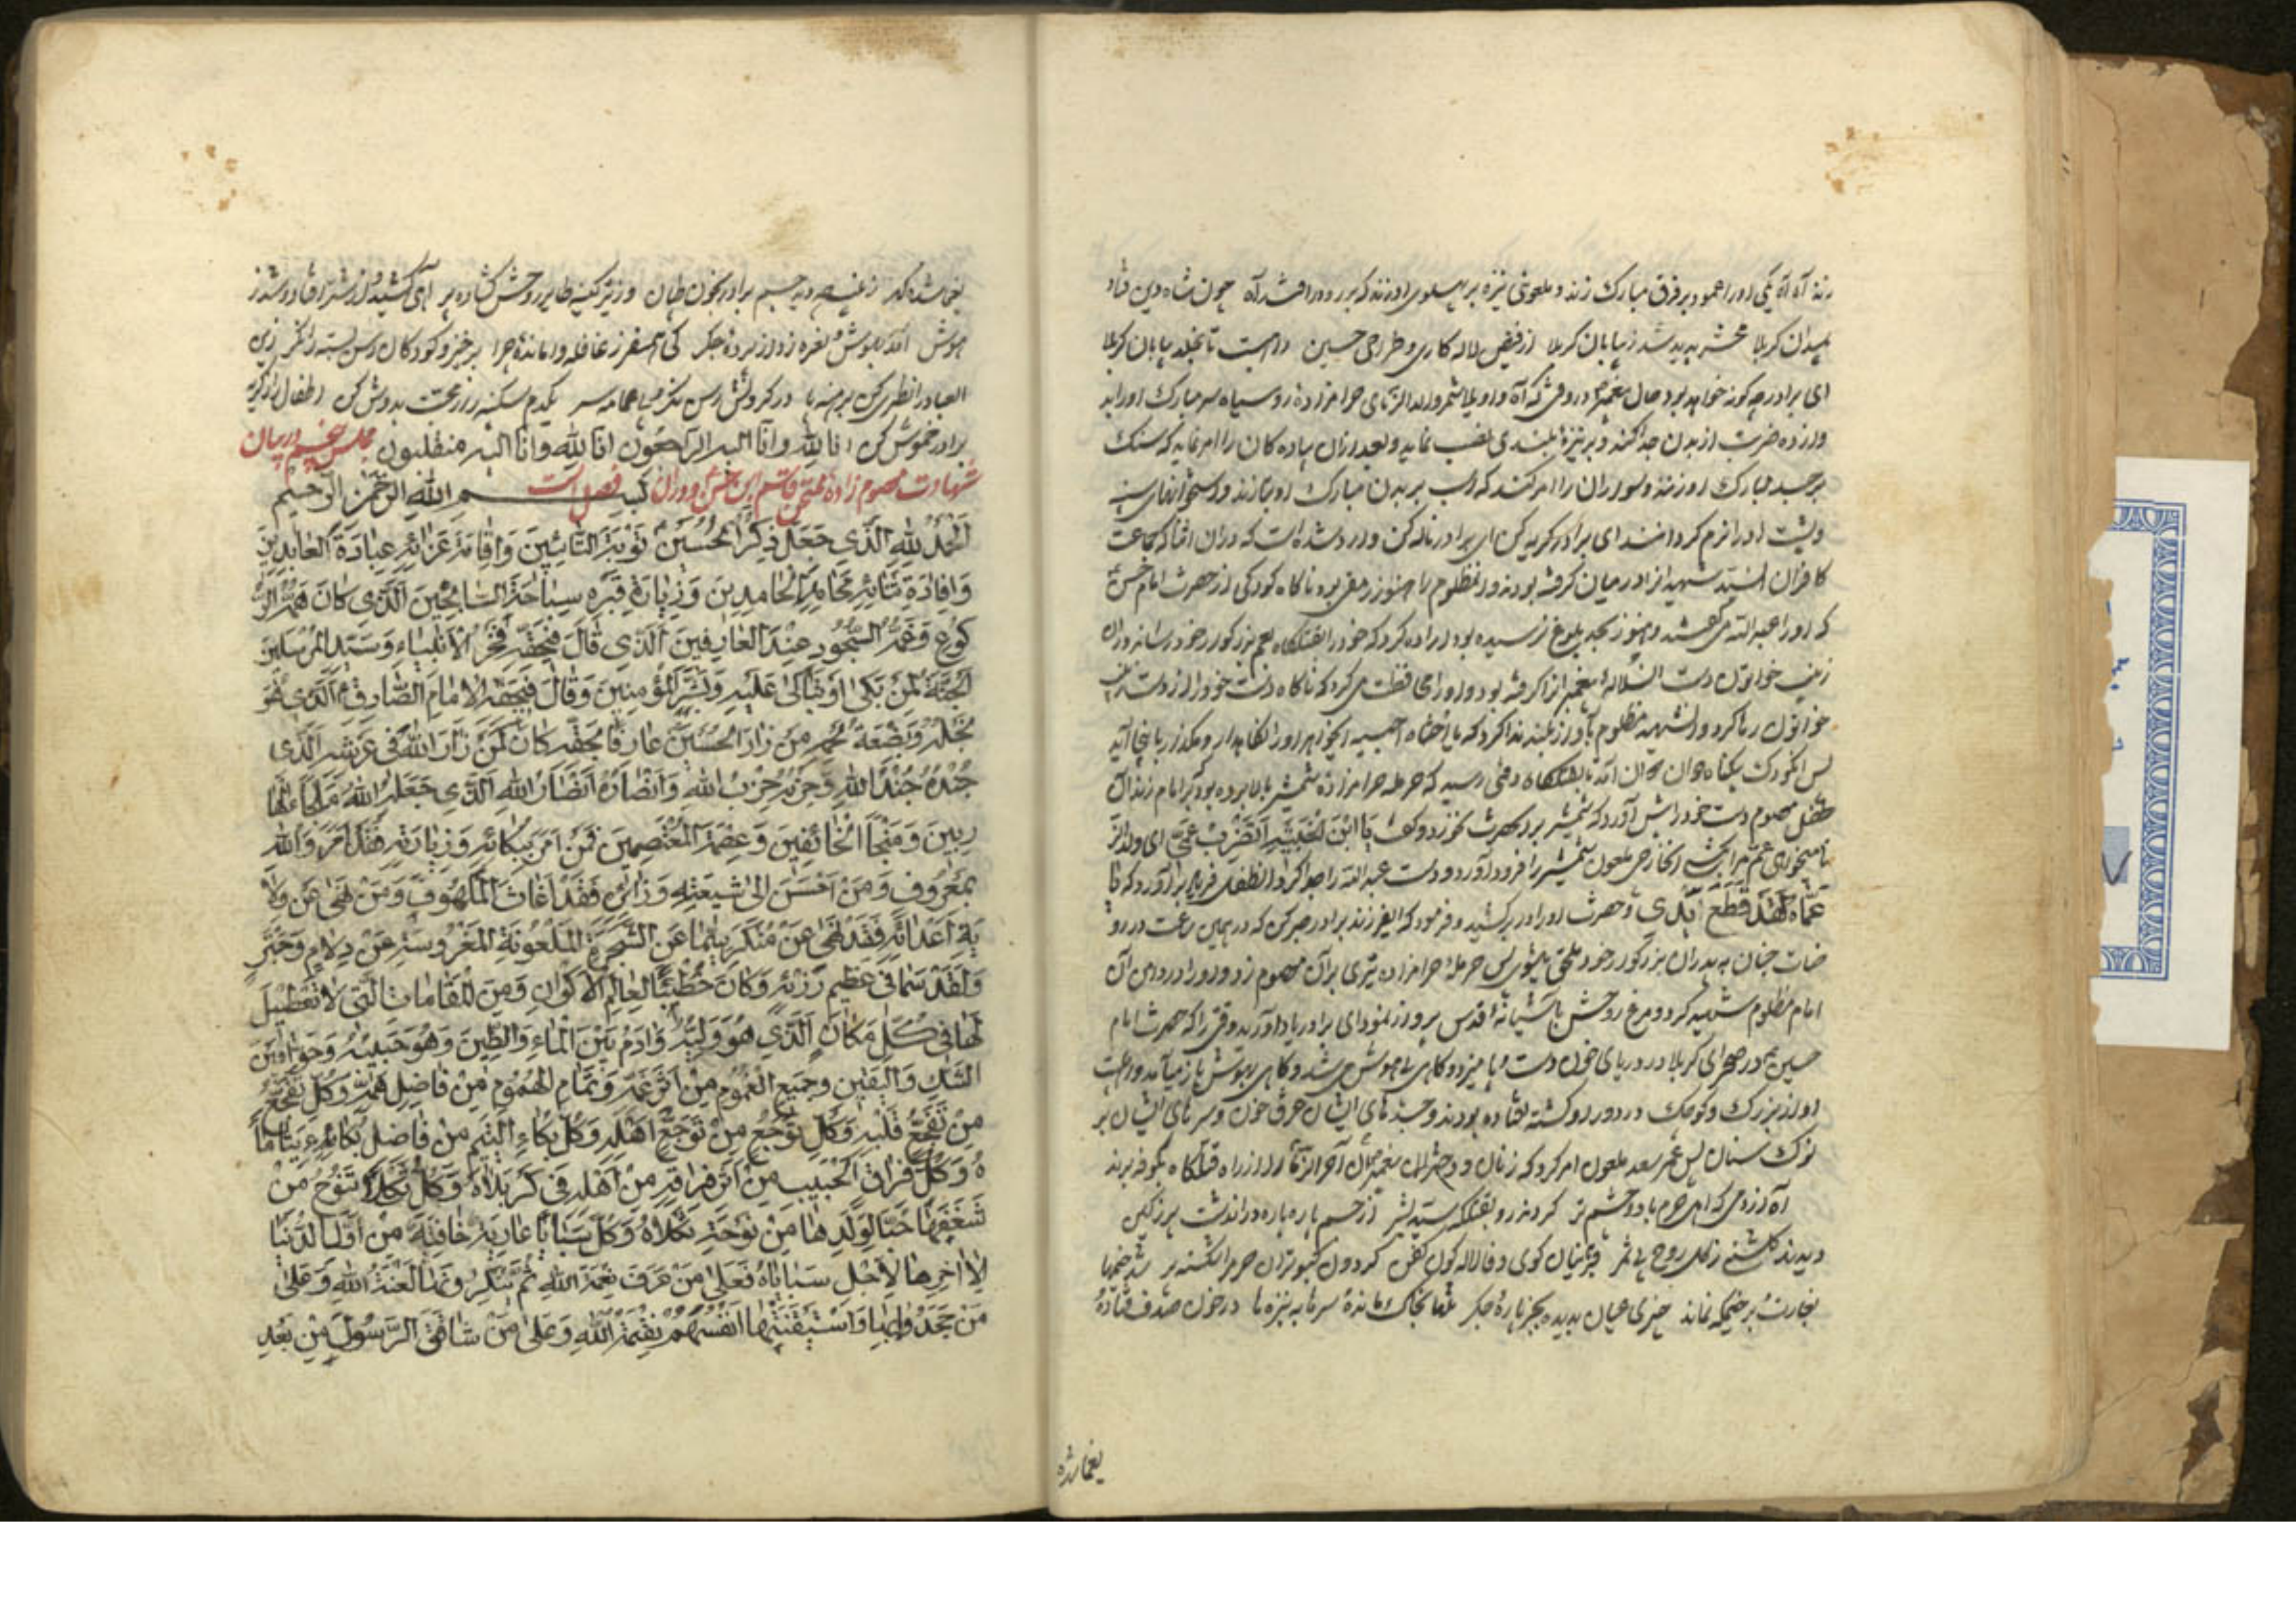 زند آه آه یکی او را عمود بر فرق مبارک زند و ملعونی نیزه بر پهلوی او زند که بر رو در افتد آه چون شاه دین فتاد
بمیدان کربلا محشر پدید شد ز بیابان کربلا از فیض لاله کاری و طراحی حسین تا بیابان کربلا
ای برادر چگونه خواهد بود حال پیغمبر در وقتی که آه واویلا شمر ولد الزنای حرامزادهٔ روسیاه سر مبارک او را بد
وازده ضربت از بدن جدا کند و بر نیزهٔ بلندی نصب نماید و بعد از آن پیاده کان را امر نماید که سنک
بر جسد مبارک او زنند و سواران را امر کند که اسب بر بدن مبارک او بتازند و استخوانهای
و پشت او را نرم کردانند ای برادر کریه کن ای برادر ناله کن وارد شده است که در آن اثنا که جماعت
کافران سید شهیدان را در میان کرفته بودند و آن مظلوم را هنوز رمقی بود ناکاه کودکی از حضرت امام حسن
که او را عبد الله میکفتند و هنوز بحد بلوغ نرسیده بود اراده کرد که خود را بقتلکاه عم بزرکوار خود رساند و آن
زینب خواتون دست آن سلاله پیغمبر را کرفته بود و او را محافظت می کرد که ناکاه دست خود را از دست
خواتون رها کرد و آن شهید مظلوم بآواز بلند ندا کرد که یا اختاه احبسیه ایخواهر او را نکاهدار و مکذار باینجا آید
پس آن کودک بیکناه دوان دوان آمد تا بقتلکاه وقتی رسید که حرمله حرامزاده شمشیر بالا برده بود که بر امام زند آن
طفل معصوم دست خود را پیش آورد که شمشیر بر آن حضرت نخورد و گفت یا ابن الخبیثه اتضرب عمی ای ولد الزنا
میخواهی عم مرا بکشی آن خارجی ملعون شمشیر را فرود آورد و دست عبد الله را جدا کرد آن طفل فریاد برآورد که یا
عماه لقد قطع ایدی و حضرت او را در بر کشید و فرمود که ای فرزند برادر صبر کن که در همین ساعت در رو
ضات جنان به پدران بزرکوار خود ملحق میشوی پس حرملهٔ حرامزاده تیری بر آن معصوم زد و او را در دامن آن
امام مظلوم شهید کرد و مرغ روحش باشیانهٔ قدس پرواز نمود ای برادر یاد آورید وقتی را که حضرت امام
حسین در صحرای کربلا در دریای خون دست و پا میزد و کاهی بیهوش میشد و کاهی بهوش باز میآمد و اهلبیت
او از بزرک و کوچک در دور او کشته افتاده بودند و جسدهای ایشان غرق خون و سرهای ایشان بر
نوک سنان پس عمر سعد ملعون امر کرد که زنان و دختران پیغمبر آخر الزمان را از راه قتلکاه بکوفه برند
آه از دمی که اهل حرم با دو چشم تر کردند رو بقتلکه سید بشر از جسم پاره پاره در آن دشت هر زمین
دیدند کلشنی ز کل روح بی ثمر کردون کبوتران حرم را شکسته پر
بغارت برخیمکه نماند چیزی عیان بدیده بجز پارهٔ جکر تنها بخاک مانده سرها به نیزه ها در خون صدف فتاده
یغما شده
یغما شده کهر زینب چو دید جسم برادر بخون طپان وز تیر کینه طایر روحش کشاده پر آهی کشید و از شتر افتاد و شد ز
هوش آمد بهوش نعره زد از پردهٔ جکر کی همسفر ز قافله واماندهٔ چرا برخیز و کودکان رسن بسته را نکر زین
العباد را نظری کن برهنه پا در کردنش رسن نکر بی عمامه سر یکدم سکینه را ز محبت بدوش کش اطفال را ز کریه
برادر خموش کن انا لله وانا الیه الراجعون انا لله وانا الیه منقلبون مجلس پنجم در بیان
شهادت معصوم زاده ممتحن قاسم ابن حسن و در آن فصل است بسم الله الرحمن الرحیم
الحمد لله الذی جعل ذکر الحسین توبة التائبین واقامة عزائه عبادة العابدین
وافادة ثنائه محامد الحامدین وزیارة قبره سیاحة السائحین الذی کان همه الر
کوع وغمه السجود عند العارفین الذی قال فیحقه فخر الانبیاء وسید المرسلین
الجنة لمن بکی او تباکی علیه وبشر المؤمنین وقال فیحقه الامام الصادق الذی هو
نجله وبضعة لحمه من زار الحسین عارفا بحقه کان کمن زار الله فی عرشه الذی
جنده جند الله وحزبه حزب الله وانصاره انصار الله الذی جعله الله ملجاء للها
ربین ومنجأ الخائفین وعصمة المعتصمین فمن امر ببکائه وزیارته فقد امر والله
بمعروف ومن احسن الی شیعته وزائره فقد اغاث الملهوف ومن نهی عن ولا
یة اعدائه فقد نهی عن منکر سیما عن الشجرة الملعونة المغروسة عن
ولقد سما فی عظیم رزئه وکان خطیبا لعالم الاکوان ومن للمقامات التی لا تعطیل
لها فی کل مکان الذی هو ولیه وآدم بین الماء والطین وهو حبیبه وحوا بین
الشک والیقین وجمیع الغموم من اثر غمه وتمام الهموم من فاضل همه وکل تفجع
من تفجع قلبه وکل توجع من توجع اهله وکل بکاء الیتیم من فاضل بکاء یتاما
ه وکل فراق الحبیب من اثر فراقه من اهله فی کربلاه وکل ثکلاء تنوح من
شغفها حبا لولدها من نوحة ثکلاه وکل سبایا عاریة حافیة من اول الدنیا
الا اخرها لاجل سبایاه فعلی من عرف نعمة الله ثم ینکرونها لعنة الله وعلی
من جحدوا بها واستیقنتها انفسهم نقمة الله وعلی من شاقق الرسول من بعد